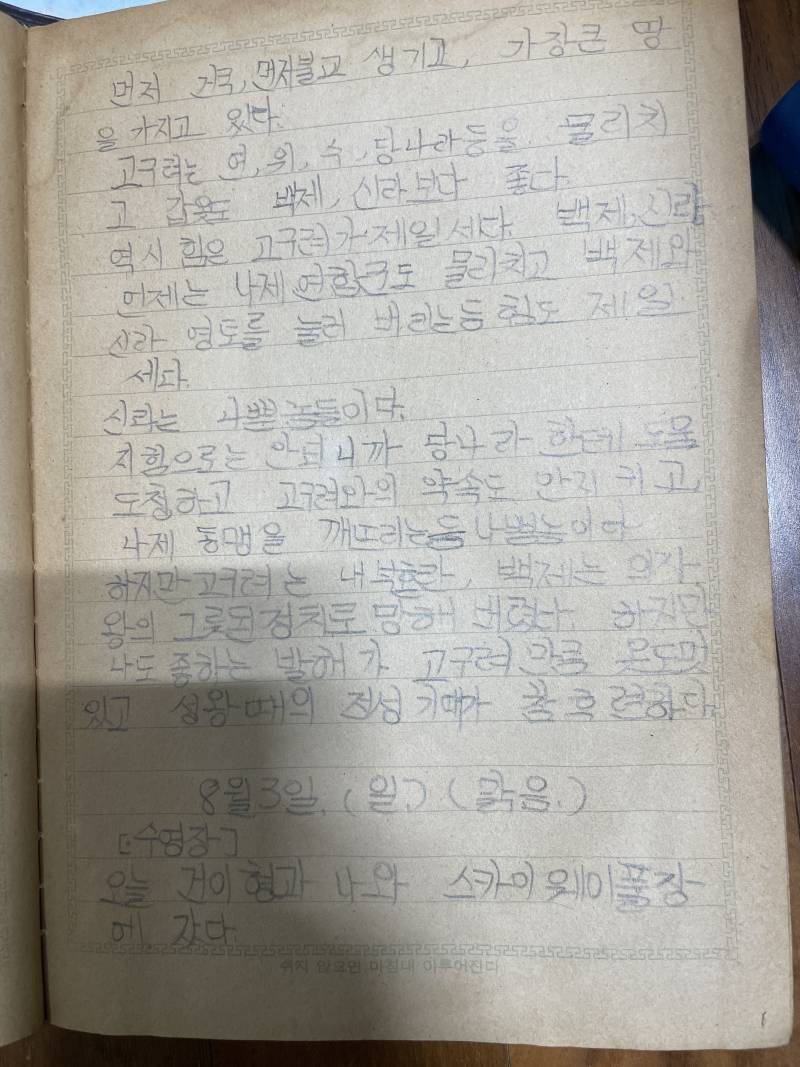 먼저 건국, 먼저불교 생기고, 가장큰 땅
을 가지고 있다.
고구려는 연, 위, 수, 당나라등을 물리치
고 갑옷도 백제, 신라보다 좋다.
역시 힘은 고구려가 제일 세다. 백제, 신라
언제는 나제 연합군도 물리치고 백제와
신라 영토를 눌러 버리는등 힘도 제일
세다.
신라는 나쁜 놈들이다.
지힘으로는 안되니까 당나라 한테 도움
도청하고 고구려와의 약속도 안지키고,
나제 동맹을 깨뜨리는등 나쁜놈이다
하지만 고구려는 내부혼란, 백제는 의자
왕의 그릇된정치로 망해 버렸다. 하지만
나도 좋하는 발해가 고구려 만큼 옷도멋
있고 성왕때의 전성기때가 참 후련하다.
8월3일. (일.) (맑음.)
[·수영장]
오늘 건이형과 나와 스카이웨이풀장
에 갔다.
쉬지 않으면 마침내 이루어진다